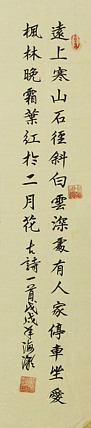 遠上寒山石徑斜白雲深處有人家停車坐愛
楓林晚霜葉紅於二月花古詩一首戊戌年海潮